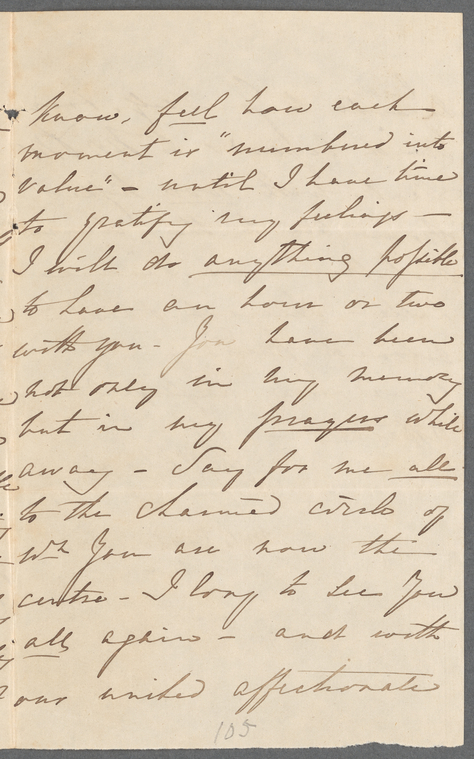 know, feel how each
moment is "numbered into
value" - until I have time
to gratify my feelings -
I will do anything possible
to have an hour or two
with you - You have been
not only in my memory
but in my prayers while
away - Say for me all
to the charmed circle of
wh You are now the
centre - I long to see You
all again - and with
our united affectionate
105